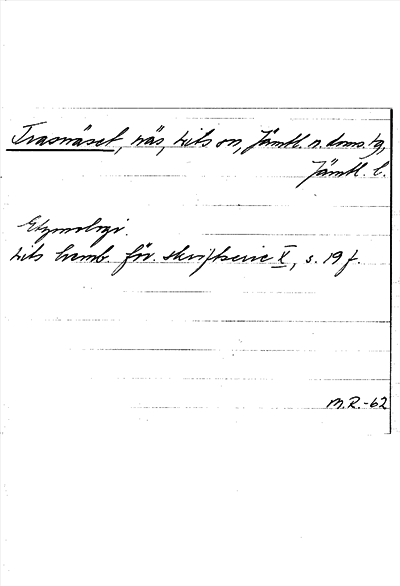 Trasnäset, näs, Lits sn, Jämtl. n. doms. tg,
Jämtl. l.
Etymologi.
Lits hemb. för. skriftserie X, s. 19 f.
M.R.-62